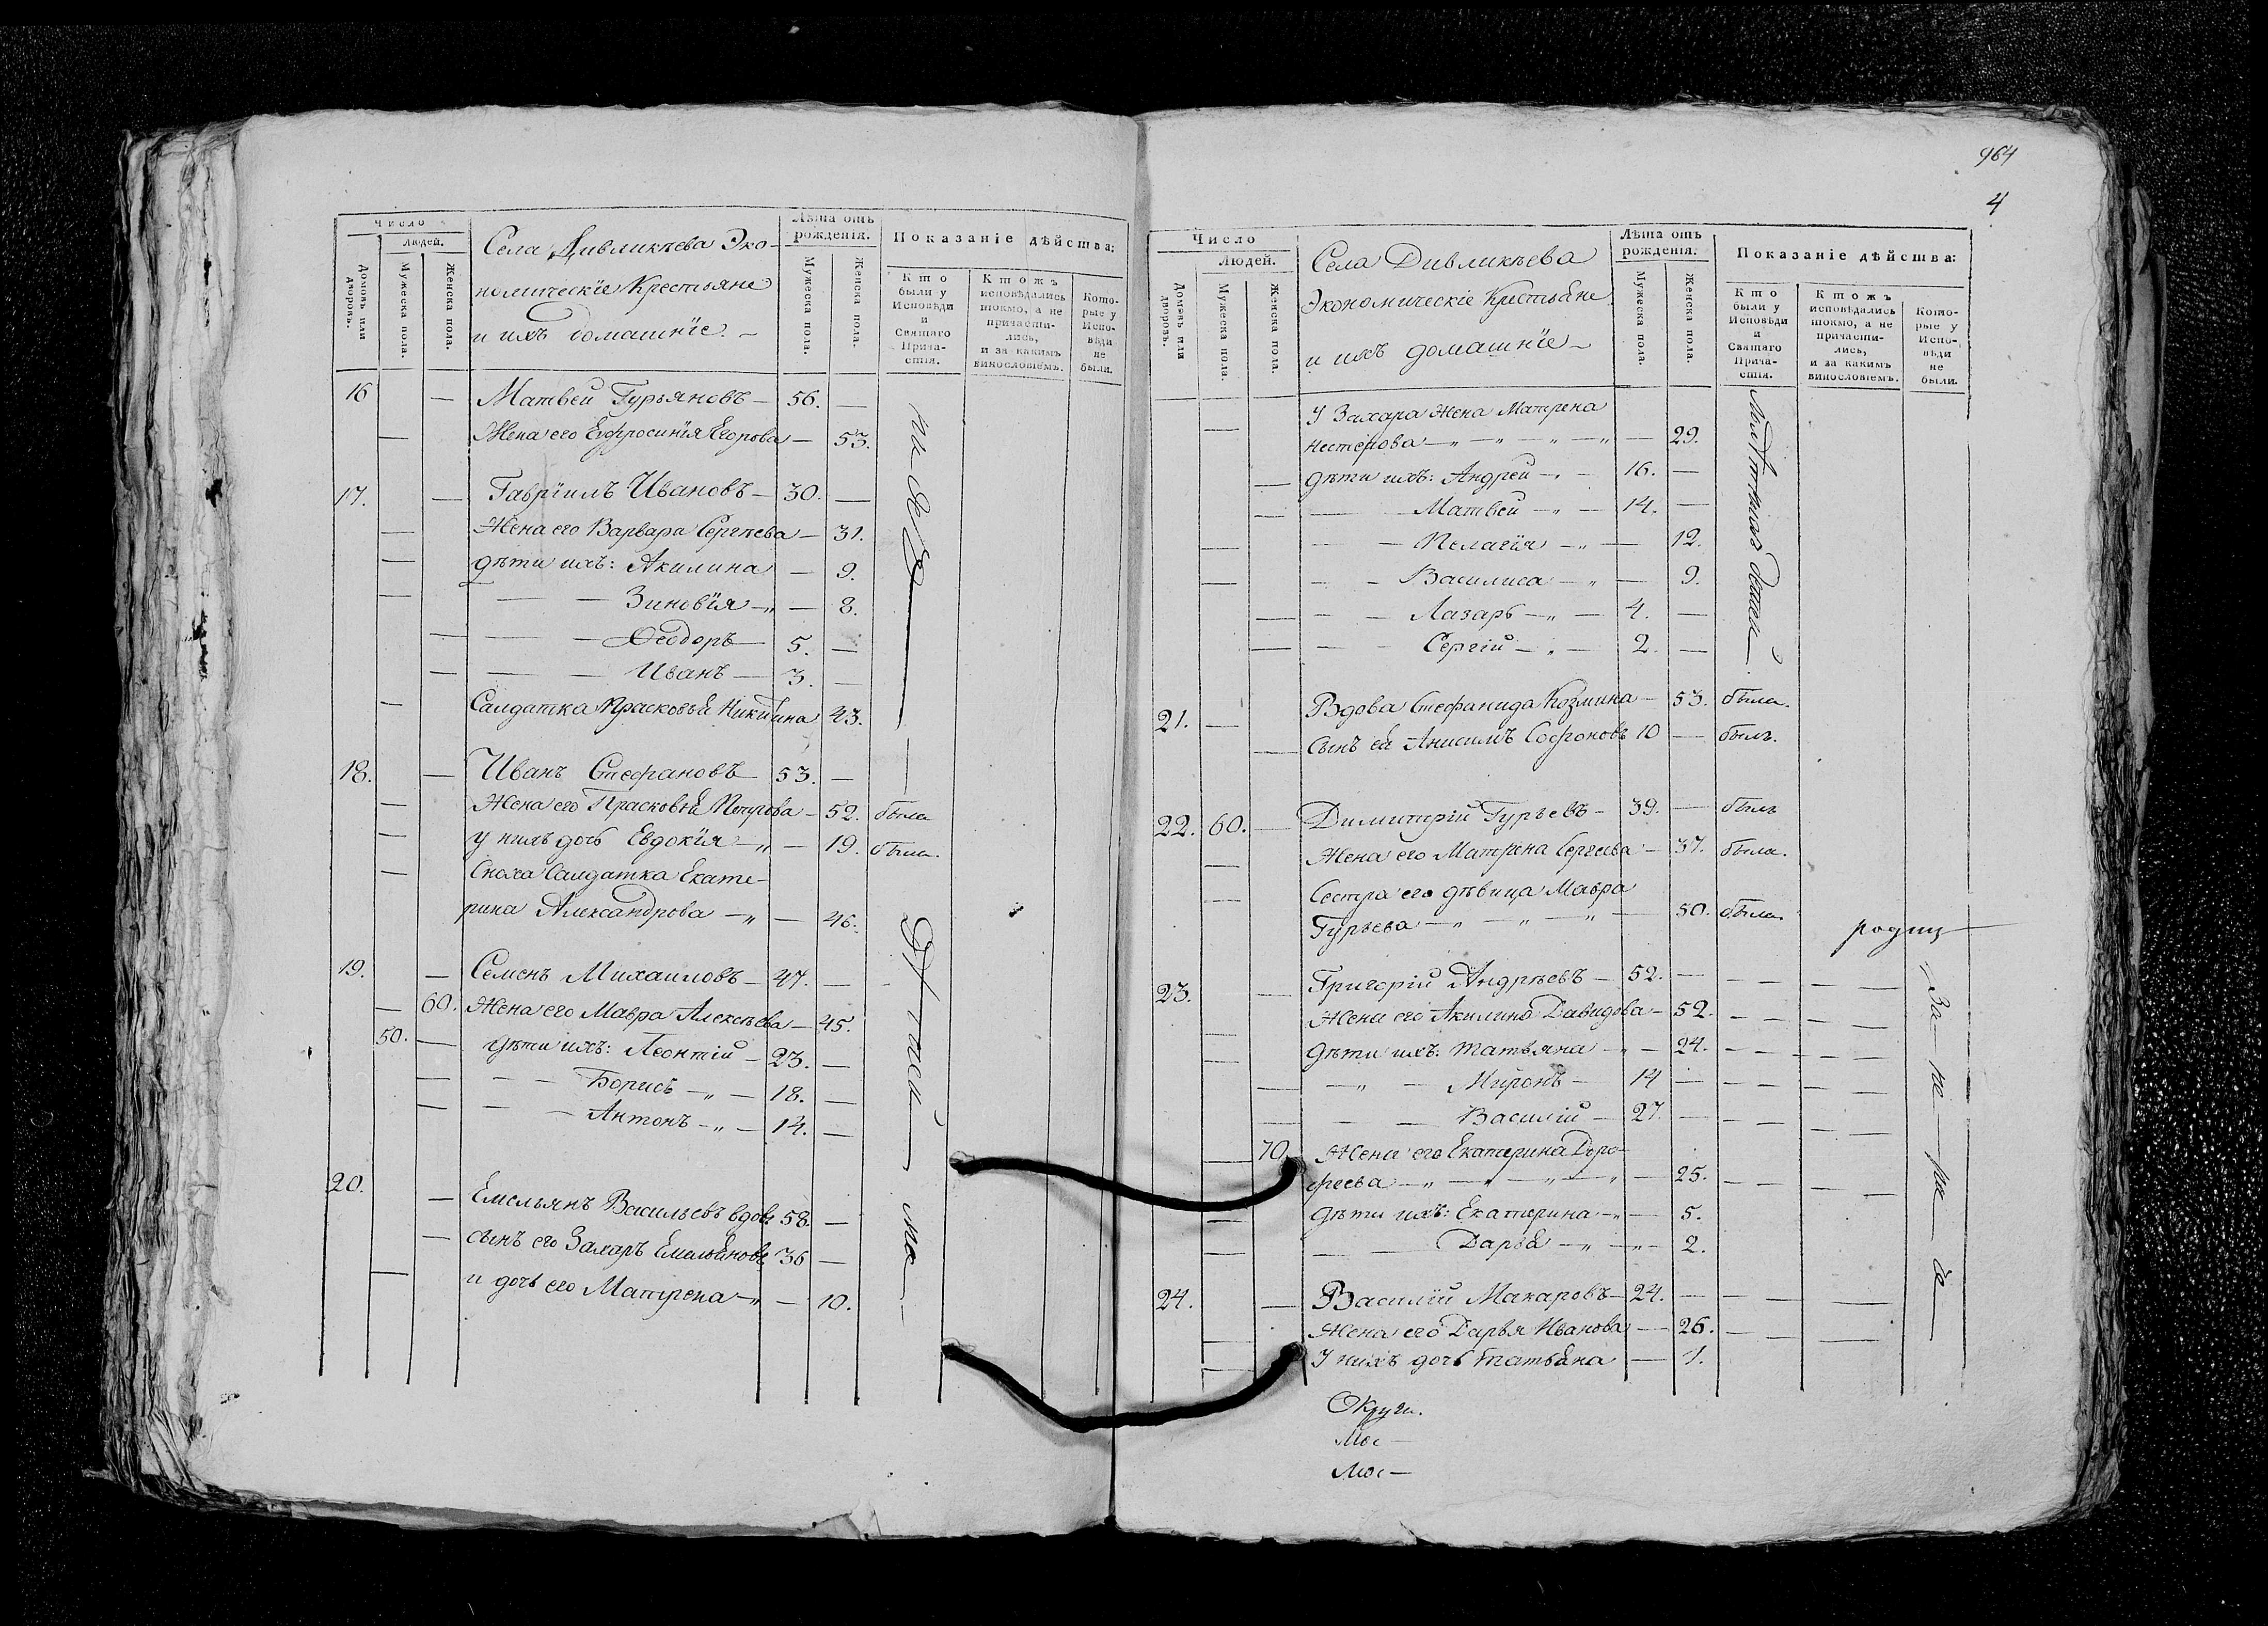 Число
Людей.
Домовъ или дворовъ.
Мужеска пола.
Женска пола.
Села Дивликѣева Эко-
номическіе Крестьяне
и ихъ домашніе. —
Лѣта отъ рожденія.
Мужеска пола.
Женска пола.
Показаніе дѣйства:
Кто были у Исповѣди и Святаго Прича-стія.
Ктожъ исповѣдались токмо, а не причасти-лись, и за какимъ винословіемъ.
Кото-рые у Испо-вѣди не были.
16 — Матвей Гурьяновъ — 56. —
— Жена его Ефросинія Егорова — 53.
17. — Гавріилъ Ивановъ — 30. —
— Жена его Варвара Сергѣева — 31.
— дѣти ихъ: Акилина — 9.
— — — Зиновія — „ — 8.
— — — Ѳеодоръ — 5. —
— — — Иванъ — 3. —
— Салдатка Прасковья Никитина 43.
18. — Иванъ Стефановъ — 53. —
— Жена его Прасковья Петрова — 52. была
— у нихъ дочь Евдокія — „ — 19. была.
— Сноха Салдатка Екате-
рина Александрова — „ — 46.
19. — Семенъ Михаиловъ — 47. —
— 60. Жена его Мавра Алексѣева — 45.
50. — дѣти ихъ: Леонтій — 23. —
— — — Борисъ — „ — 18. —
— — — Антонъ — „ — 14. —
20. — Емельянъ Васильевъ вдовъ 58. —
— сынъ его Захаръ Емельяновъ 36 —
— и дочь его Матрена — „ — 10.
964
4
Число
Людей.
Домовъ или дворовъ.
Мужеска пола.
Женска пола.
Села Дивликѣева
Экономическіе Крестьяне
и ихъ домашніе —
Лѣта отъ рожденія.
Мужеска пола.
Женска пола.
Показаніе дѣйства:
Кто были у Исповѣди и Святаго Прича-стія.
Ктожъ исповѣдались токмо, а не причасти-лись, и за какимъ винословіемъ.
Кото-рые у Испо-вѣди не были.
У Захара Жена Матрена
— Нестерова — „ — „ — „ — 29.
— дѣти ихъ: Андрей — „ — 16. —
— — — Матвей — „ — 14. —
— — — Пелагія — „ — 12.
— — — Василиса — „ — 9.
— — — Лазарь — „ — 4. —
— — — Сергій — „ — 2. —
21. — Вдова Стефанида Козмина — 53. была.
— сынъ ея Анисимъ Софоновъ 10 — былъ.
22. 60. — Димитрій Гурьевъ — 39. — былъ
— Жена его Матрена Сергеева — 37. была.
— Сестра его дѣвица Мавра
Гурьева — „ — „ — „ — 50. была.
23. — Григорій Андрѣевъ — 52. —
— Жена его Акилина Давидова — 52.
— дѣти ихъ: Татьяна — „ — 24.
— — „ — Миронъ — 14 —
— — — Василій — 27. —
— 70. Жена его Екатерина Доро-
феева — „ — „ — „ — „ — 25.
— дѣти ихъ: Екатерина — „ — 5.
— — — Дарья — „ — 2.
24. — Василій Макаровъ — 24. —
— Жена его Дарья Иванова — 26.
— У нихъ дочь Татьяна — 1.